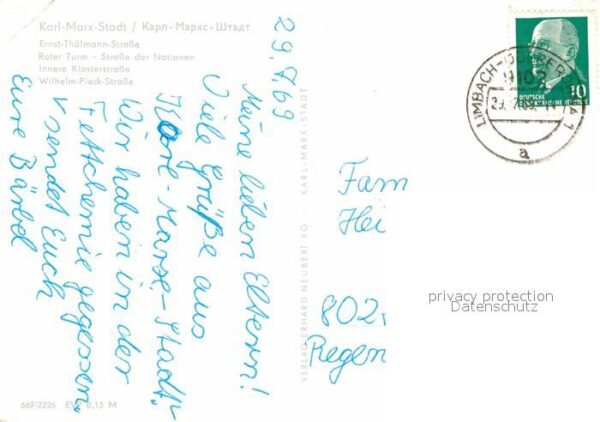 Karl-Marx-Stadt / Карл-Маркс-Штадт
Ernst-Thälmann-Straße
Roter Turm - Straße der Nationen
Innere Klosterstraße
Wilhelm-Pieck-Straße
29.7.69
Meine lieben Eltern!
Viele Grüße aus
Karl-Marx-Stadt.
Wir haben in der
Fettchemie gegessen.
sendet Euch
Eure Bärbel
VERLAG ERHARD NEUBERT KG · KARL-MARX-STADT
669/2226 EVP 0,15 M
LIMBACH-OBERFROHNA 1
9102
29.7.69
a
10
DEUTSCHE
DEMOKRATISCHE REPUBLIK
Fam
Hei
802
Regen
privacy protection
Datenschutz